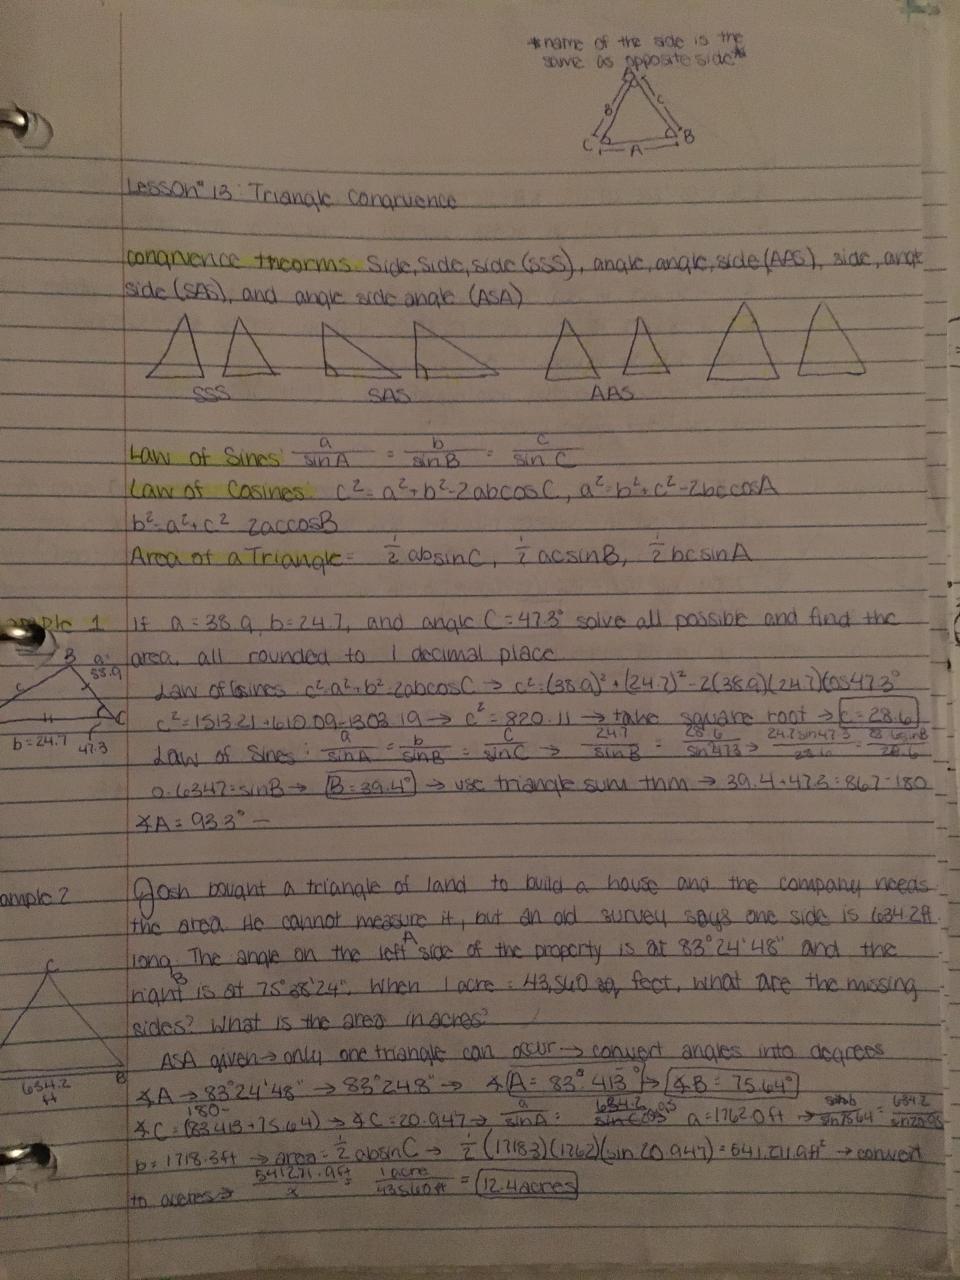 *name of the side is the
same as opposite side*
B
C
C
B
A
Lesson 13: Triangle Congruence
congruence theorms: Side, Side, side (SSS), angle, angle, side (AAS), side, angle
side (SAS), and angle side angle (ASA)
SSS SAS AAS
Law of Sines: a/sinA = b/sinB = c/sinC
Law of Cosines: c²=a²+b²-2abcosC, a²=b²+c²-2bccosA
b²=a²+c² 2accosB
Area of a Triangle= 1/2 absinC, 1/2 acsinB, 1/2 bcsinA
ample 1 If a=38.9, b=24.7, and angle C=47.3° solve all possible and find the
area, all rounded to 1 decimal place
B
a=
38.9
c
C
b=24.7 47.3
Law of Cosines c²=a²+b²-2abcosC → c²=(38.9)²+(24.7)²-2(38.9)(24.7)cos47.3°
c²=1513.21+610.09-1303.19 → c²=820.11 → take square root → c=28.6
Law of Sines: a/sinA = b/sinB = c/sinC → 24.7/sinB = 28.6/sin47.3 → 24.7sin47.3/28.6 = 28.6sinB/28.6
0.6347=sinB → B=39.4° → use triangle sum thm → 39.4+47.3=86.7-180
∡A=93.3° —
ample 2 Josh bought a triangle of land to build a house and the company needs
the area. He cannot measure it, but an old survey says one side is 634.2ft
long. The angle on the left A side of the property is at 83°24'48" and the
right B is at 75°38'24". When 1 acre = 43,560 sq feet, what are the missing
sides? What is the area in acres?
C
B
634.2
ft
ASA given → only one triangle can occur → convert angles into degrees
∡A → 83°24'48" → 83°24.8" → ∡A=83.413° → ∡B=75.64°
∡C=180-(83.413+75.64) → ∡C=20.947 → a/sinA = 634.2 a=1762.0ft → sin75.64 = 634.2
b=1718.3ft → area=1/2 absinC → 1/2 (1718.3)(1762)(sin 20.947)=541,271.9ft² → convert
to acres → 541271.9ft/x = 1acre/43560ft = 12.4acres